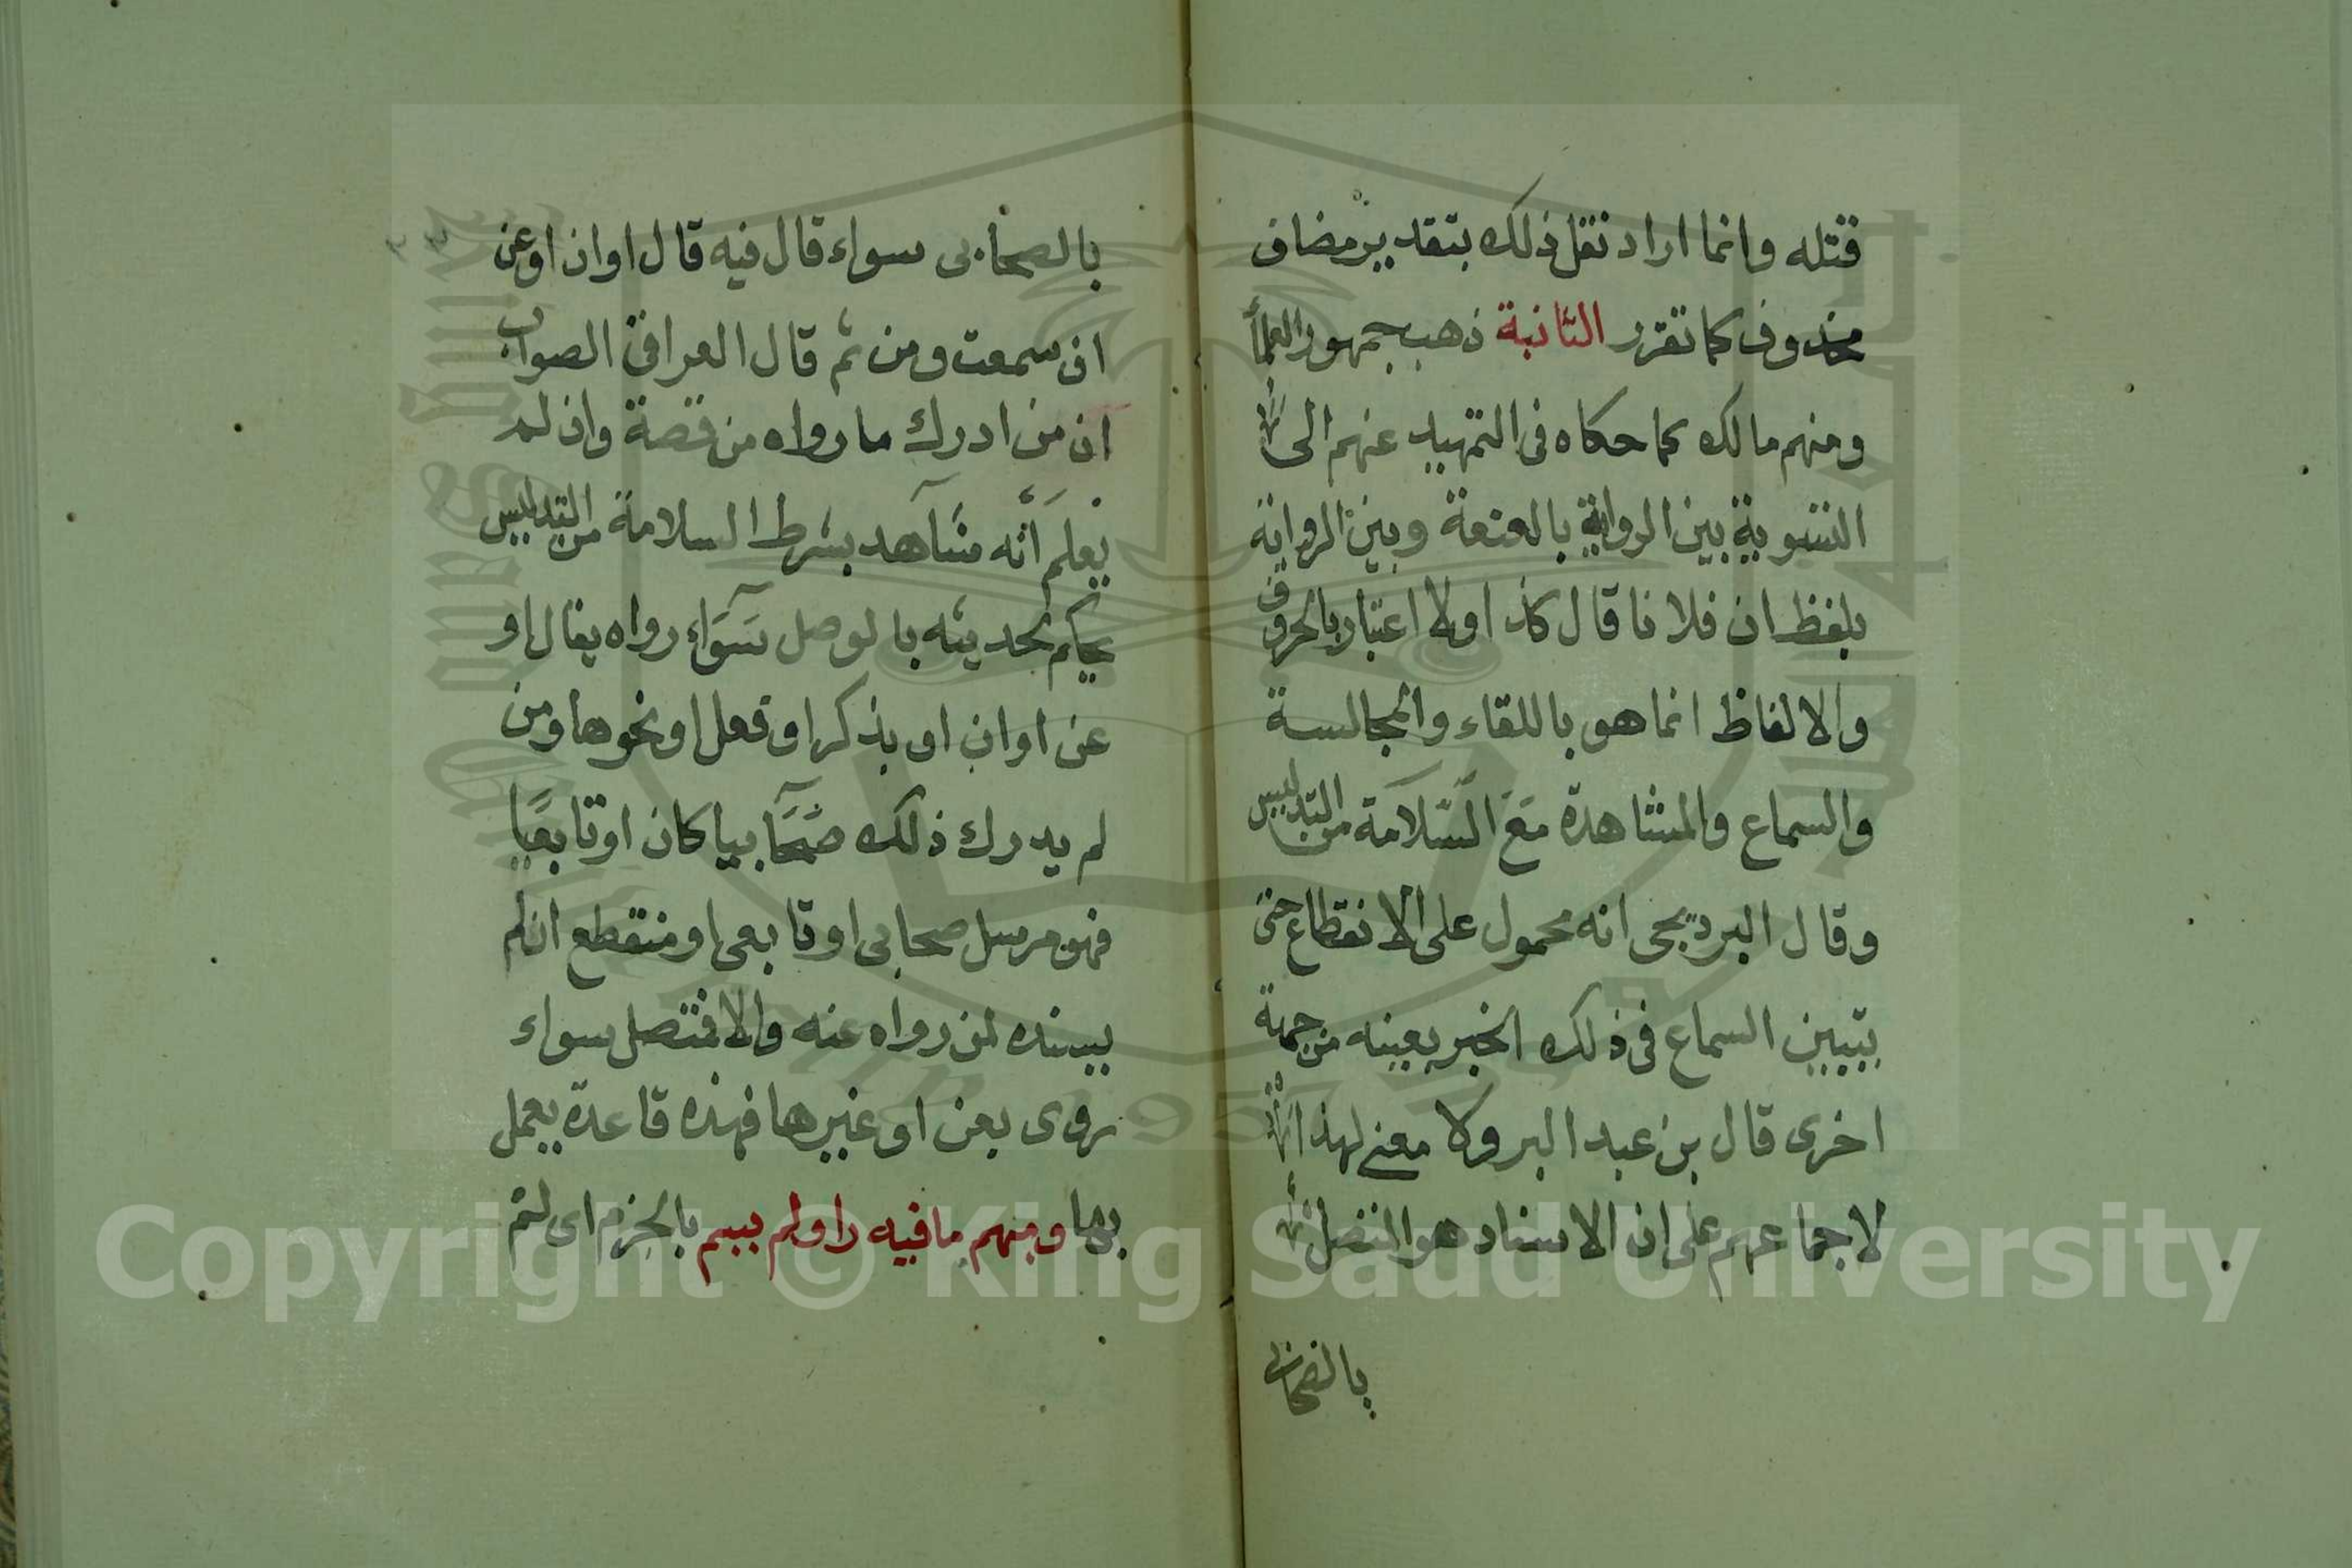 قتله وانما اراد نقل ذلك بتقدير مضاف
محذوف كما تقرر الثانية ذهب جمهور العلمأ
ومنهم مالك كما حكاه فى التمهيد عنهم الى
التسوية بين الرواية بالعنعنة وبين الرواية
بلفظ ان فلانا قال كذا ولا اعتبار بالحروف
والالفاظ انما هو باللقاء والمجالسة
والسماع والمشاهدة مَعَ السَّلَامَة من التدليس
وقال البرديجى انه محمول على الانقطاع حتى
يتبين السماع فى ذلك الخبر بعينه من جهة
اخرى قال بن عبد البر ولا معنى لهذا
لاجماعهم على ان الاسناد هو المتصل
بالصحاب
بالصحابى سواء قال فيه قال اوان اوعن
ان سمعت ومن ثم قال العراقى الصواب
ان من ادرك ما رواه من قصة وان لم
يعلم أنّه شاهد بشرط السلامة من التدليس
يحكم لحديثه بالوصل سَوَاء رواه بقال او
عن اوان او بذكر او فعل او نحوها ومن
لم يدرك ذلك صَحَابيا كان او تابعيًا
فهو مرسل صحابى او تابعى او منقطع ان لم
يسنده لمن رواه عنه والا فمتصل سواء
روى بعن او غيرها فهذه قاعدة يعمل
بها ومبهم ما فيه راو لم يسم بالجزم اى لم
Copyright © King Saud University
1957